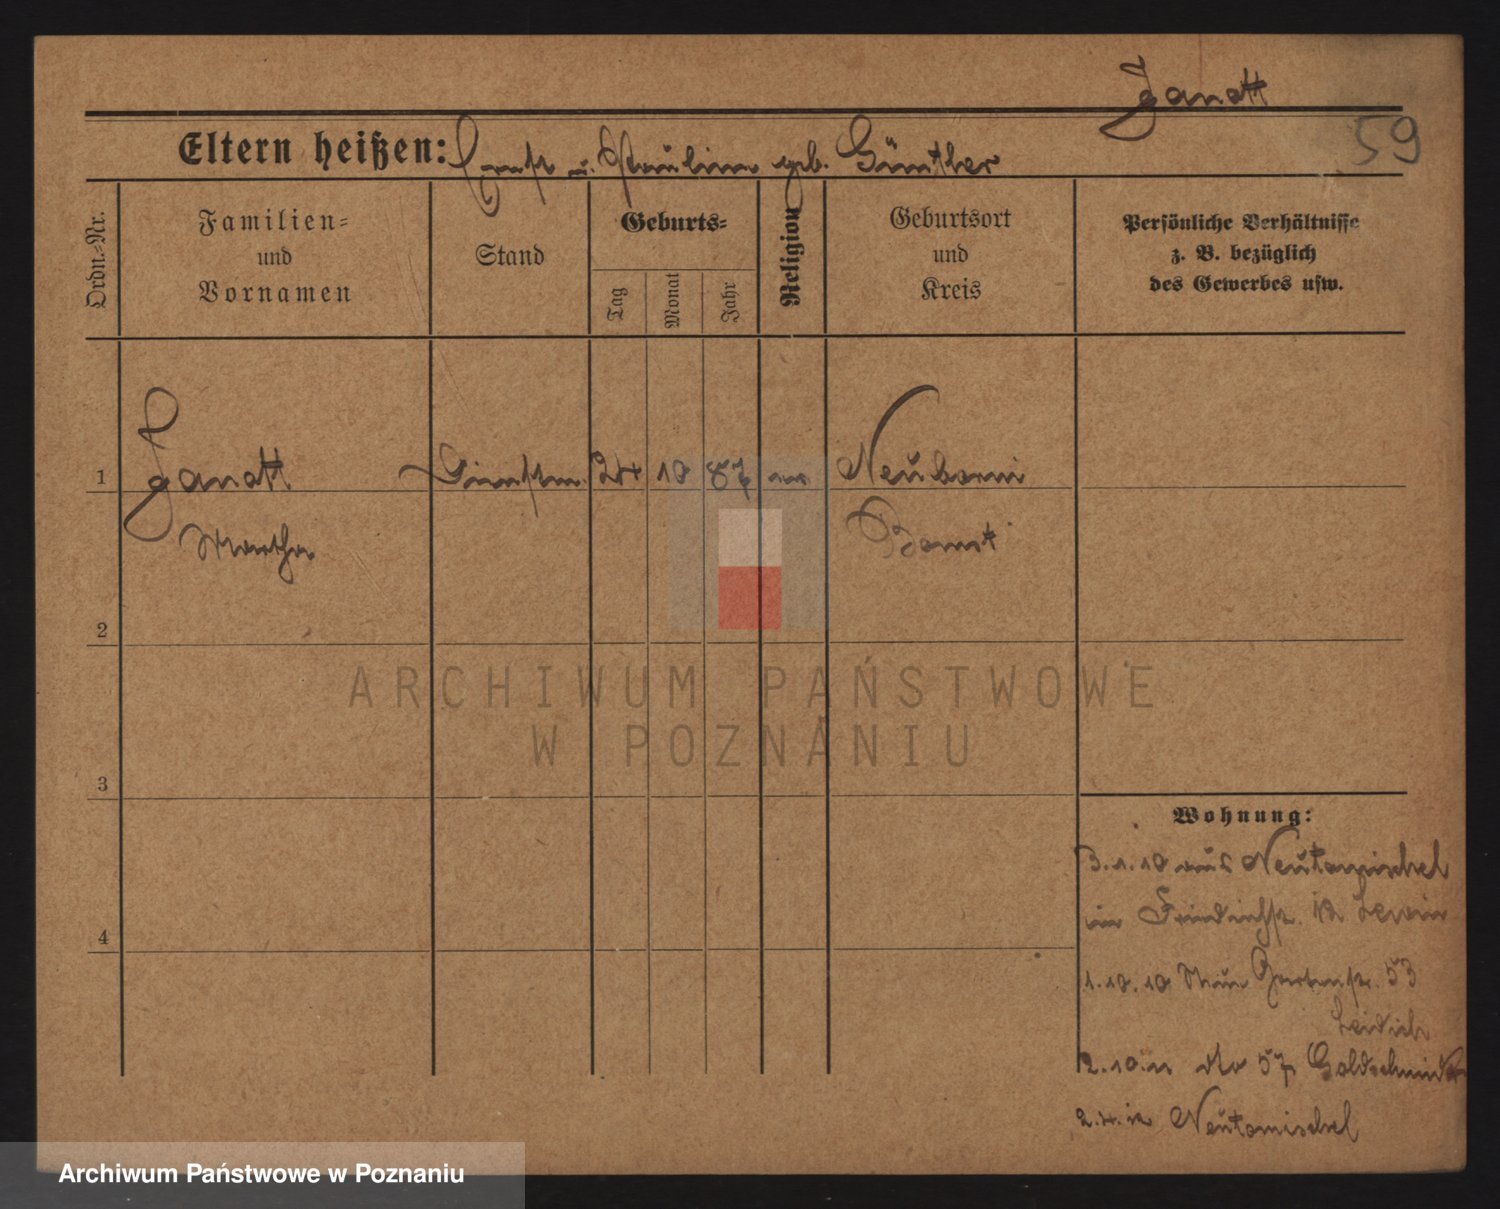 Janott
59
Eltern heißen: Ernst u. Pauline geb. Günther
Ordn.-Nr.
Familien-
und
Vornamen
Stand
Geburts-
Tag
Monat
Jahr
Religion
Geburtsort
und
Kreis
Persönliche Verhältnisse
z. B. bezüglich
des Gewerbes usw.
1 Janott Dienstm. 24 10 87 ev Neuborui
Martha Bomst
2
3
4
Wohnung:
3.1.10 aus Neutomischel
in Friedrichstr. 12 Lewin
1.10.10 Gartenstr. 53
Leidich
2.10.11 dto 57 Goldschmidt
2.4.12 Neutomischel
ARCHIWUM PAŃSTWOWE
W POZNANIU
Archiwum Państwowe w Poznaniu